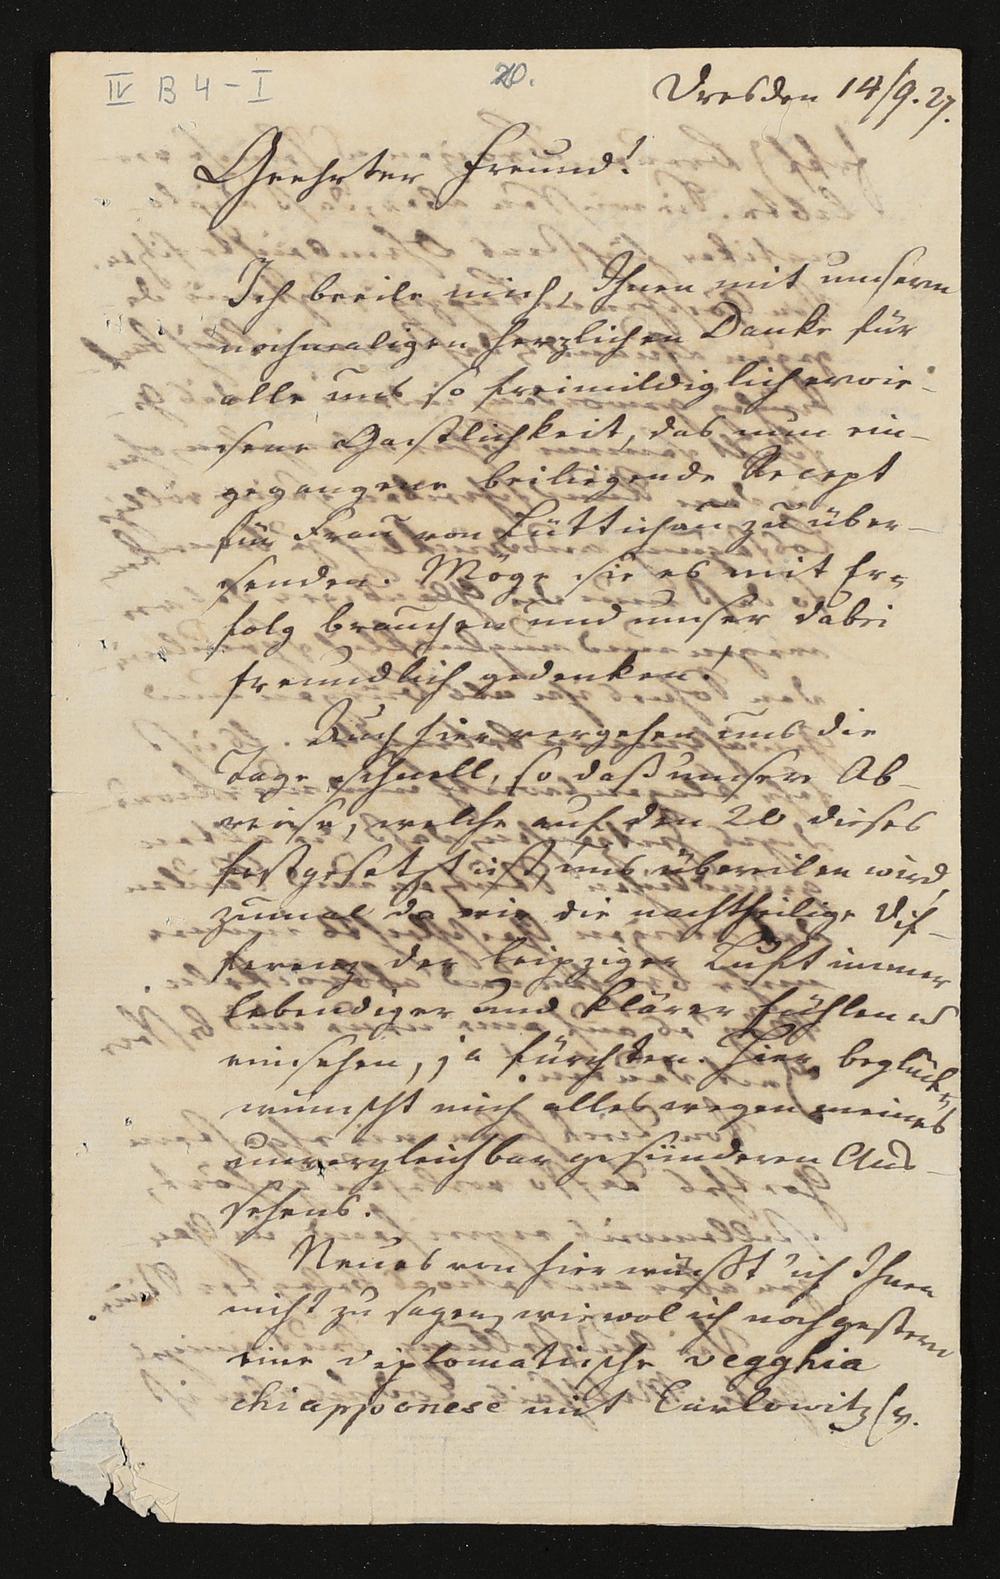 IV B 4 - I
20.
Dresden 14/9. 27.
Geehrter Freund!
Ich beeile mich, Ihnen mit unserm
nochmaligen herzlichen Danke für
alle uns so freimildiglich erwie-
sene Gastlichkeit, das nun ein-
gegangene beiliegende Recept
für Frau von Lüttichau zu über-
senden. Möge sie es mit Er-
folg brauchen und unser dabei
freundlich gedenken!
Auch hier vergehen uns die
Tage schnell, so daß unsere Ab-
reise, welche auf den 20 dieses
festgesetzt ist, uns übereilen wird,
zumal da wir die nachtheilige Dif-
ferenz der Leipziger Luft immer
lebendiger und klärer fühlen u
einsehen, ja fürchten. Hier beglück-
wünscht mich alles wegen meines
unvergleichbar gesünderen Aus-
sehens.
Neues von hier wüßt' ich Ihnen
nicht zu sagen, wiewol ich noch gestern
eine diplomatische vegghia
chiapponese mit Carlowitz